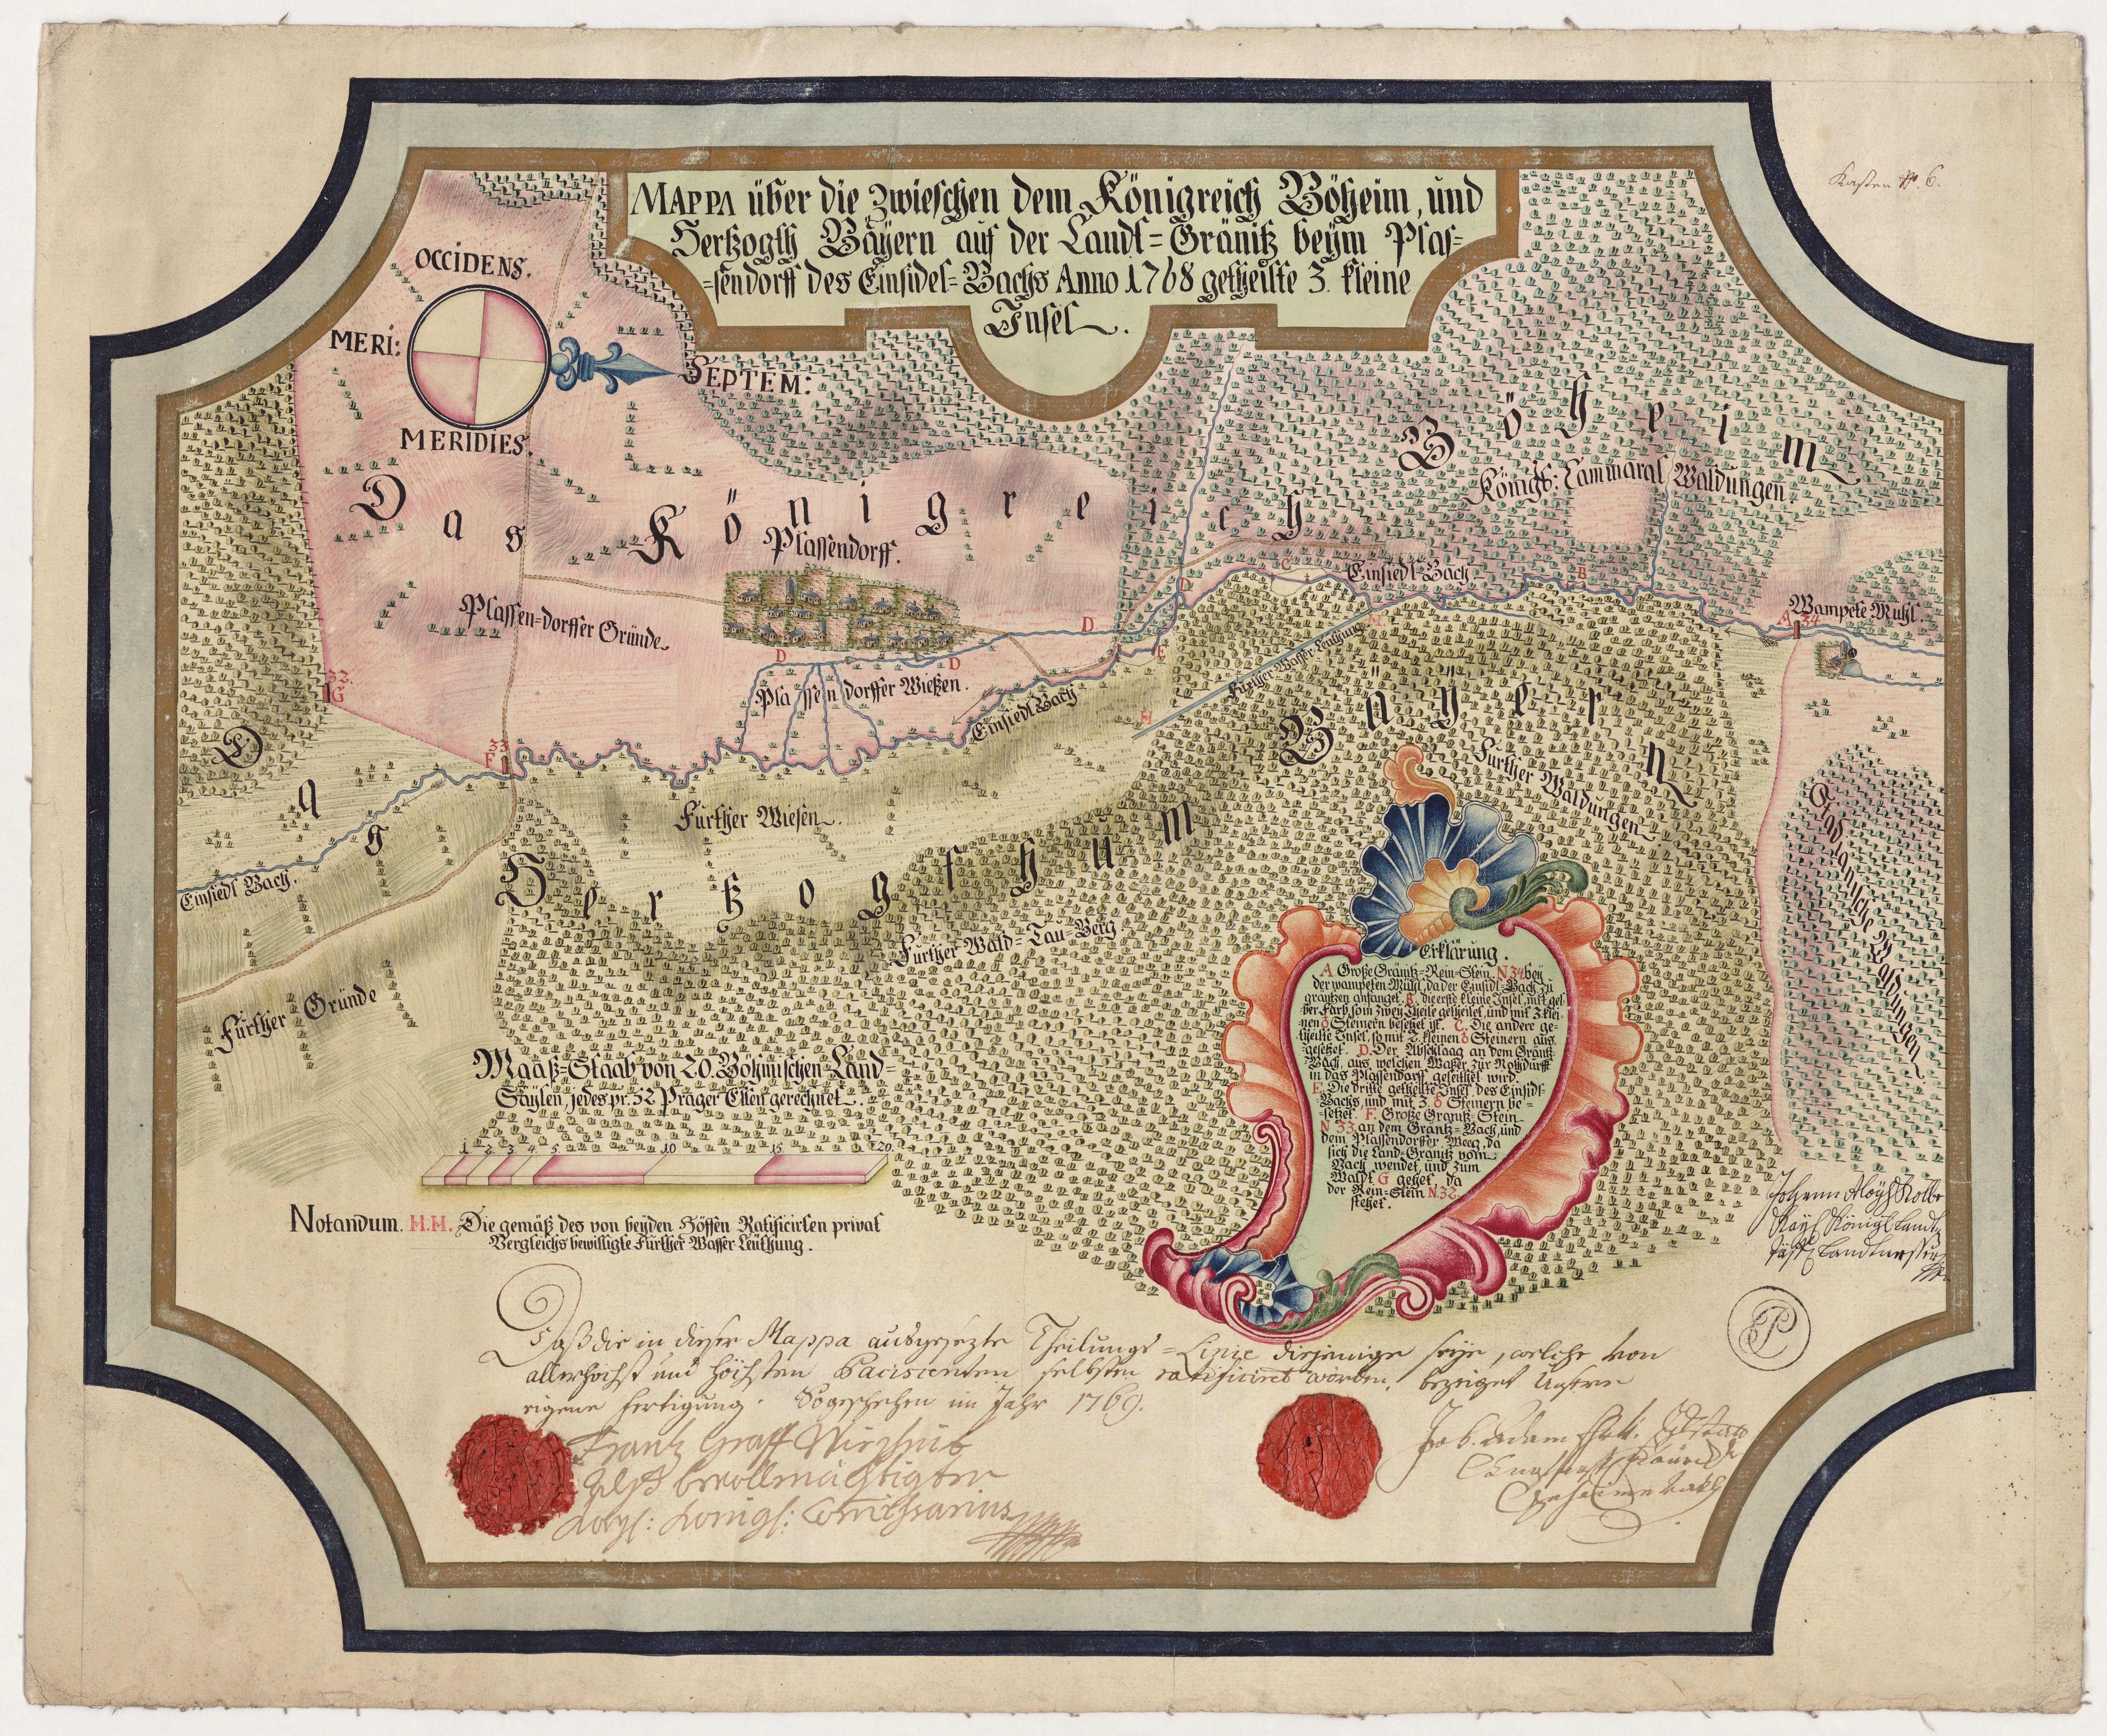 Kasten N. 6.
MAPPA über die zwieschen dem Königreich Böheim, und
Hertzogth Bäyern auf der Landt=Gränitz beÿm Plas=
=sendorff des Einsidel=Bachs Anno 1768 getheilte 3. kleine
Insel.
OCCIDENS.
MERI:
SEPTEM:
MERIDIES.
Das Königreich Böheim
Königl: Cammeral Waldungen
Plassendorff.
Plassen=dorffer Gründe
Plassendorffer Wießen.
Einsiedl Bach
Einsiedl Bach
Einsiedl Bach.
Wampete Mühl.
A 34
B
C
D
D
D
D
E
F 33
G 32.
H
H
Further Wasser Leithung
Das Hertzogthum Bäyern
Further Wiesen.
Further Waldungen
Further Wald=Tau=Berg
Further Gründe
Stadlonische Waldungen
Erklärung.
A Große Gränitz=Rein=Stein. N 34 beÿ
der wampeten Mühl, da der Einsidl=Bach zu
gräntzen anfanget. B. die erste kleine Insel, mit gel=
ber Farb, so in zweÿ Theile getheilet, und mit 3. klei=
nen Steinern besetzet ist. C. Die andere ge=
theilte Insel, so mit 2. kleinen Steinern aus
gesetzet. D. Der Abschlaag an dem Gräntz
Bach, aus welchen Waßer zur Nothdurfft
in das Plassendorff geleithet wird.
E. Die dritte getheilte Insel des Einsidl=
Bachs, und mit 3. Steinern be=
=setzet. F. Große Granitz=Stein
N 33 an dem Gräntz=Bach, und
dem Plassendorffer Weeg, da
sich die Land=Granitz vom
Bach wendet, und zum
Waldt G gehet, da
der Rein=Stein N 32.
stehet.
Maaß=Staab von 20. Böhmischen Land=
Säylen, jedes pr: 52 Prager Ellen gerechnet.
1 2 3 4 5 10 15 20.
Notandum. H.H. Die gemäß des von beÿden Höffen Ratificirten privat
Vergleichs bewilligte Further Wasser Leüthung.
Johann Aloÿs Kolbe
Kaÿl Königl Landt
Landmesser
Daß die in dieser Mappa ausgesezte Theilungs=Linie diejenige seÿe, welche von
allerhöchst und höchsten Paciscenten selbsten ratificiret worden, bezeiget Unsere
eigene Fertigung. So geschehen im Jahr 1769.
Frantz Graff
alß bevollmächtigter
Kaÿl: Königl: Comissarius
Joh. Adam